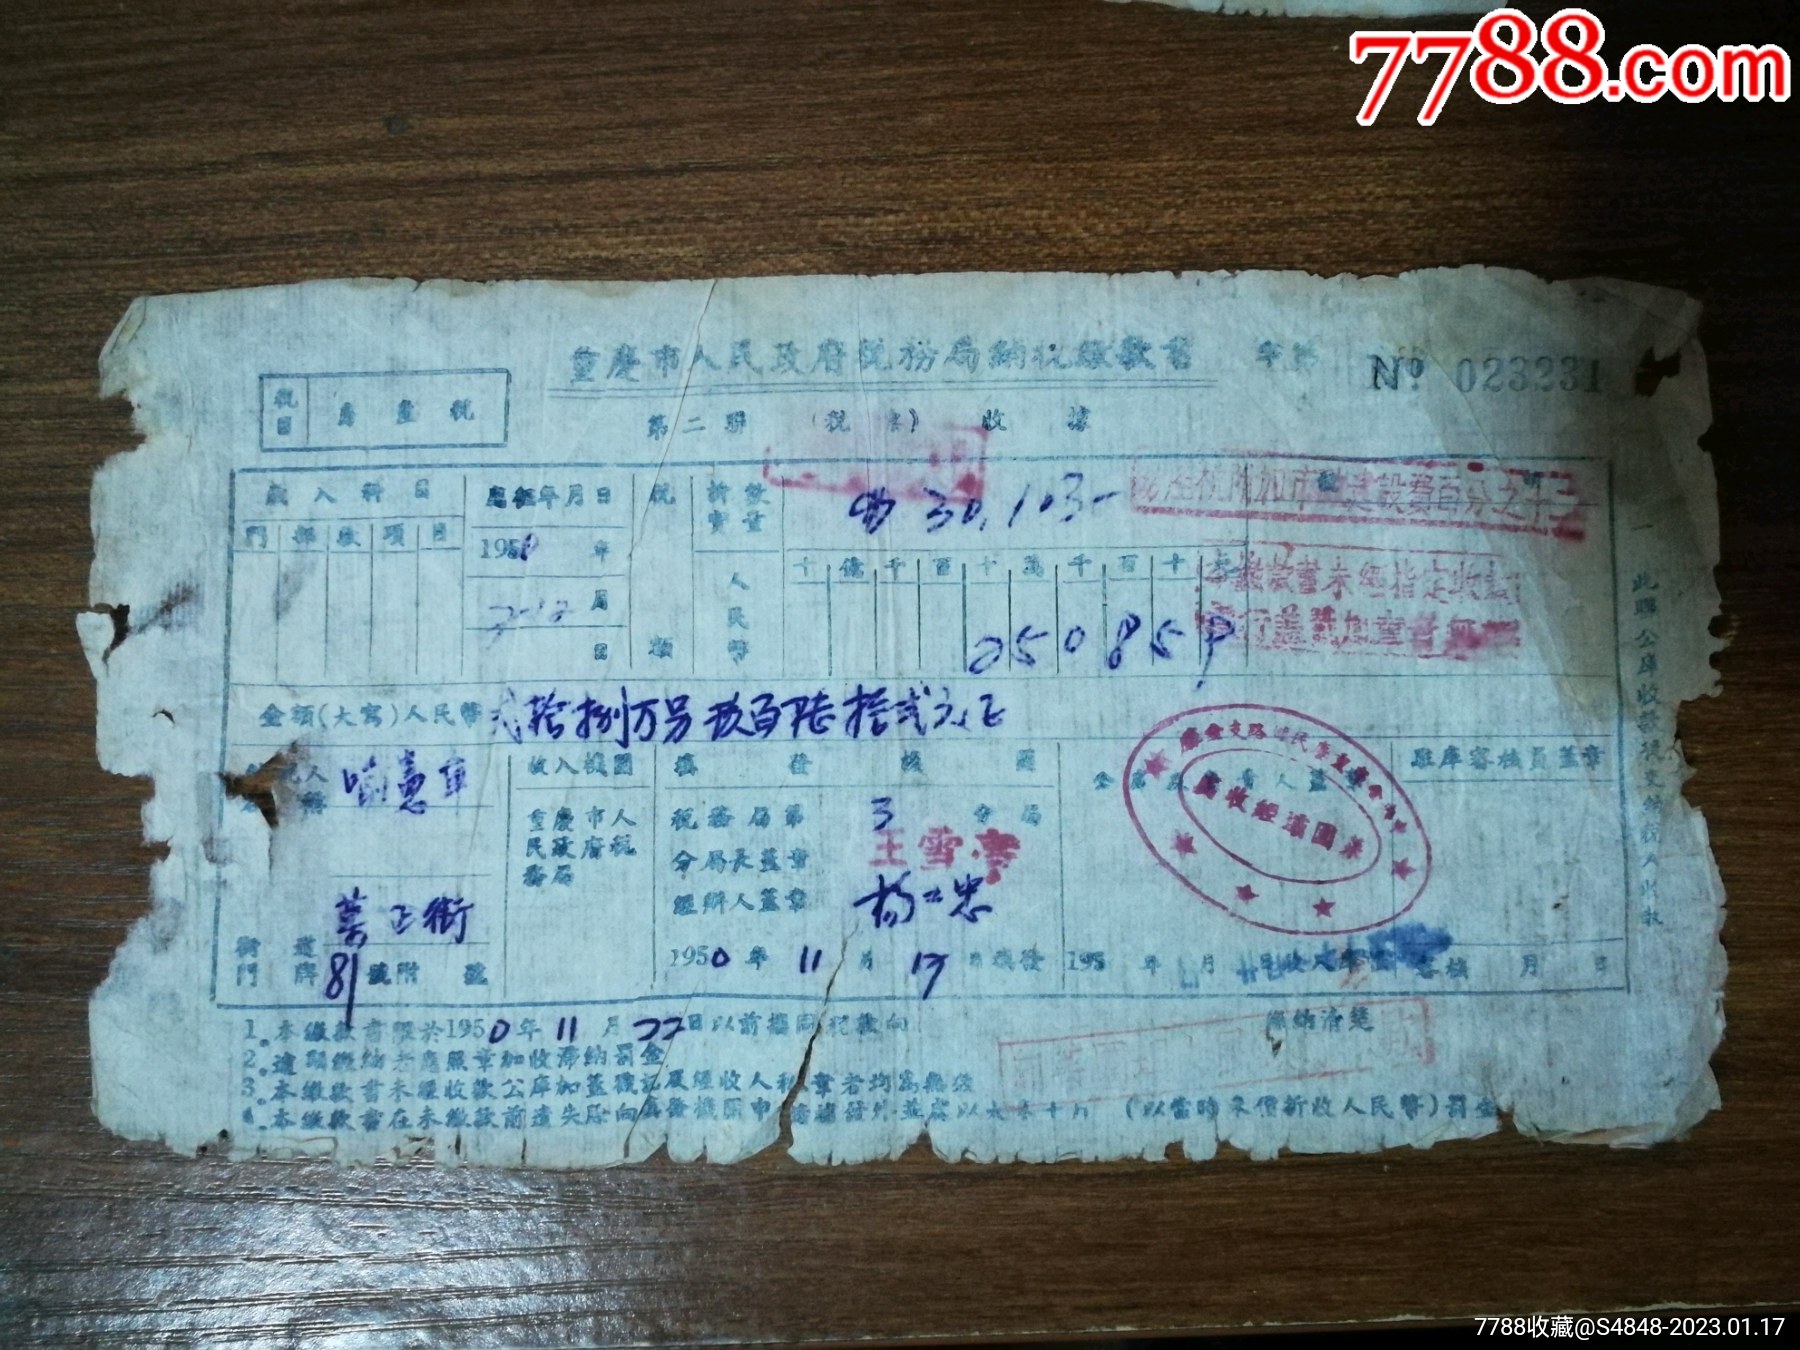 7788.com
重慶市人民政府稅務局納稅繳款書 字第 Nº 023231
稅目 房產稅
第二聯 (稅票) 收據
歲入科目
門 部 款 項 目
應征年月日
1950 年
7-12 月
日
稅額
折實 數量
30,103-
人民幣
十 億 千 百 十 萬 千 百 十 元
250859
房產稅附加市政建設費百分之十
本繳款書未經指定收款
銀行蓋
金額(大寫)人民幣 貳拾捌万另玖百陸拾貳元正
人
收入機關
填發機關
駐庫審核員蓋章
重慶市人民政府稅務局
稅務局第 3 分局
分局長蓋章 王雪亭
經辦人蓋章
街道 正街
門牌 81 號附 號
1950 年 11 月 17 日填發
195 年 月
審核 月 日
收經
1.本繳款書限於1950年 11 月 22 日以前攜同稅款向 繳納清楚
2.逾期繳納者應照章加收滯納罰金
3.本繳款書未經收款公庫加蓋機記及經收人私章者均為無效
4.本繳款書在未繳款前遺失除向填發機關申請補發外並處以大米十斤 (以當時米價折收人民幣)罰金
此聯公庫收款後交納稅人收執
7788收藏@S4848-2023.01.17